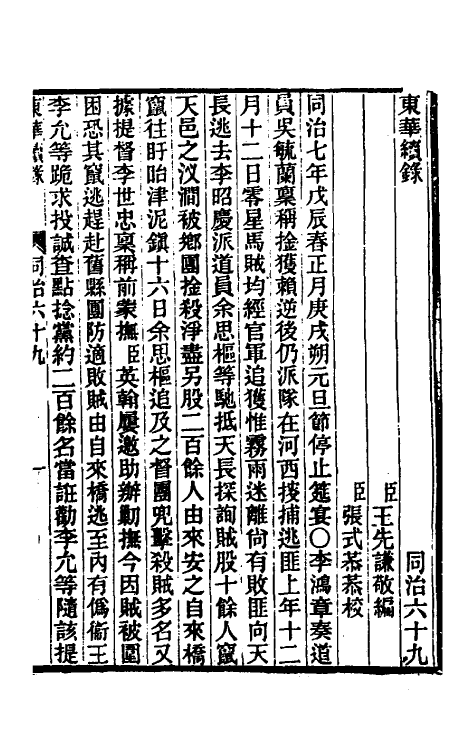 東華續錄 同治六十九
臣王先謙敬編
臣張式恭恭校
同治七年戊辰春正月庚戌朔元旦節停止筵宴〇李鴻章奏道
員吳毓蘭稟稱擒獲賴逆後仍派隊在河西搜捕逃匪上年十二
月十二日零星馬賊均經官軍追獲惟霧雨迷離尙有敗匪向天
長逃去李昭慶派道員余思樞等馳抵天長探詢賊股十餘人竄
天邑之汊澗被鄉團擒殺淨盡另股二百餘人由來安之自來橋
竄往盱眙津泥鎭十六日余思樞追及之督團兜擊殺賊多名又
據提督李世忠稟稱前蒙撫臣英翰屢邀助辦勦撫今因賊被圍
困恐其竄逃趕赴舊縣團防適敗賊由自來橋逃至內有僞衞王
李允等跪求投誠查點捻黨約二百餘名當誑勸李允等隨該提
東華續錄 同治六十九 一